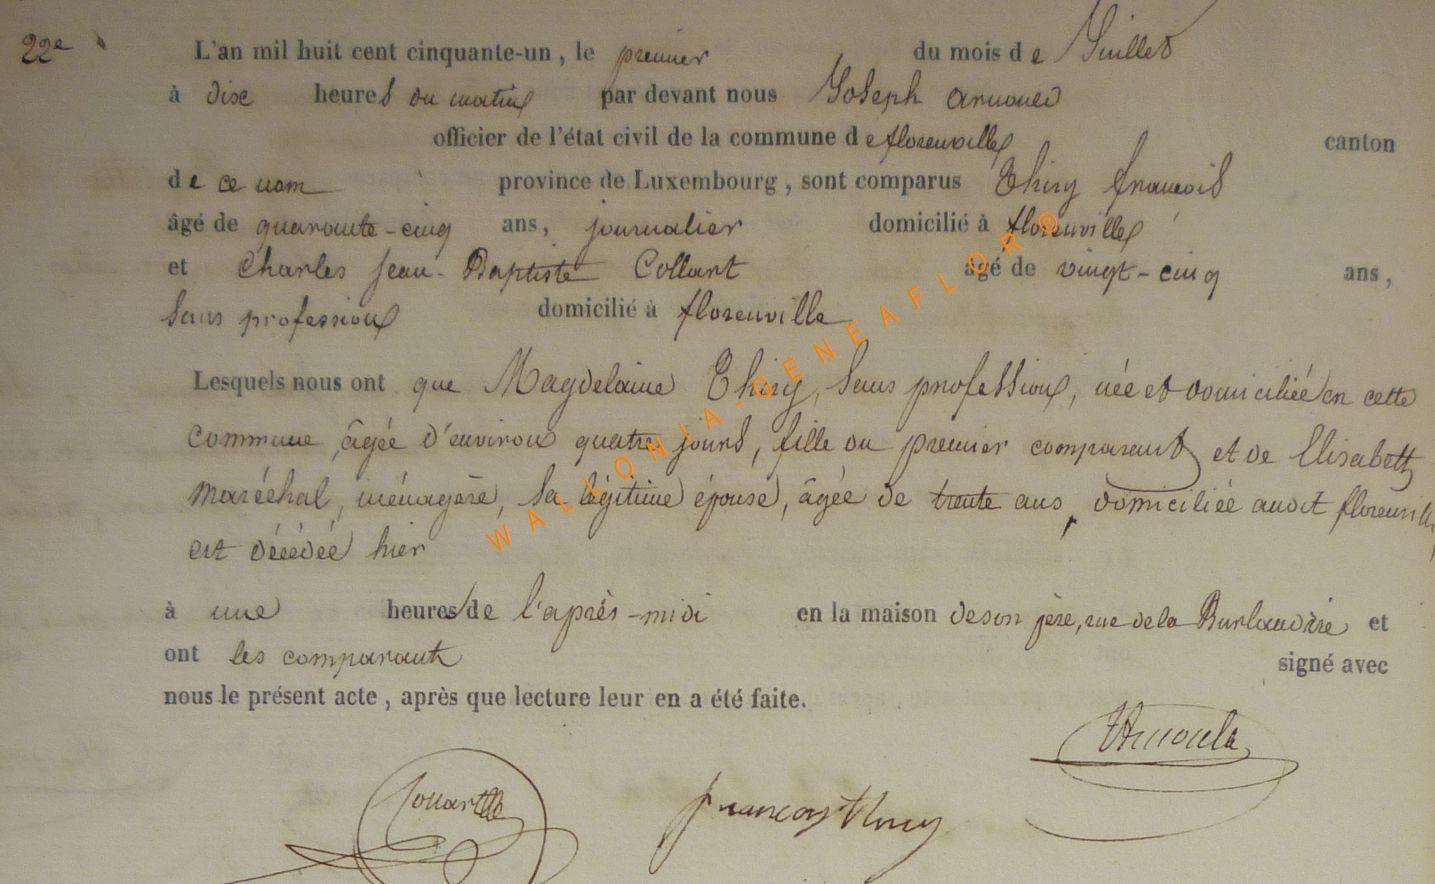 22e L'an mil huit cent cinquante-un, le premier du mois de Juillet
à dix heures du matin par devant nous Joseph Arnould
officier de l'état civil de la commune de florenville canton
de ce nom province de Luxembourg, sont comparus Thiry françois
âgé de quarante-cinq ans, journalier domicilié à florenville
et Charles Jean-Baptiste Collart âgé de vingt-cinq ans,
sans profession domicilié à florenville
Lesquels nous ont que Magdelaine Thiry, sans profession, née et domiciliée en cette
commune, âgée d'environ quatre jours, fille du premier comparant et de Elisabeth
Maréchal, ménagère, sa légitime épouse, âgée de trente ans, domiciliée audit florenville
est décédée hier
à une heures de l'après-midi en la maison de son père, rue de la et
ont les comparants signé avec
nous le présent acte, après que lecture leur en a été faite.
françois thiry
WALLONIA-GENEAFLOR®